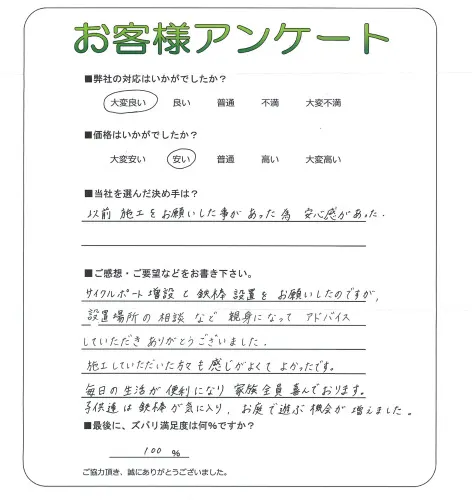 お客様アンケート
■弊社の対応はいかがでしたか？
大変良い 良い 普通 不満 大変不満
■価格はいかがでしたか？
大変安い 安い 普通 高い 大変高い
■当社を選んだ決め手は？
以前 施工をお願いした事があった為 安心感があった.
■ご感想・ご要望などをお書き下さい。
サイクルポート増設と鉄棒設置をお願いしたのですが,
設置場所の相談など親身になってアドバイス
していただきありがとうございました.
施工していただいた方々も感じがよくてよかったです。
毎日の生活が便利になり家族全員喜んでおります。
子供達は鉄棒が気に入り、お庭で遊ぶ機会が増えました。
■最後に、ズバリ満足度は何%ですか？
100 %
ご協力頂き、誠にありがとうございました。